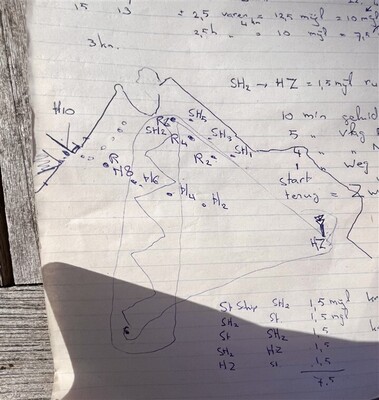 15 13 = 2,5 varen = 12,5 mijl = 10 mijl
4 kn.
2,5 h = 10 mijl = 7,5
3 kn.
SH2 → HZ = 1,5 mijl
10 min
H10
SH5
R6
SH2
R4
SH3
5
R2
SH1
4
weg
R
H8
H6
start
H4
H2
terug = Z w
HZ
St Ship SH2 1,5 mijl
SH2 St 1,5 mijl
St SH2 1,5
SH2 HZ 1,5
HZ St 1,5
7,5